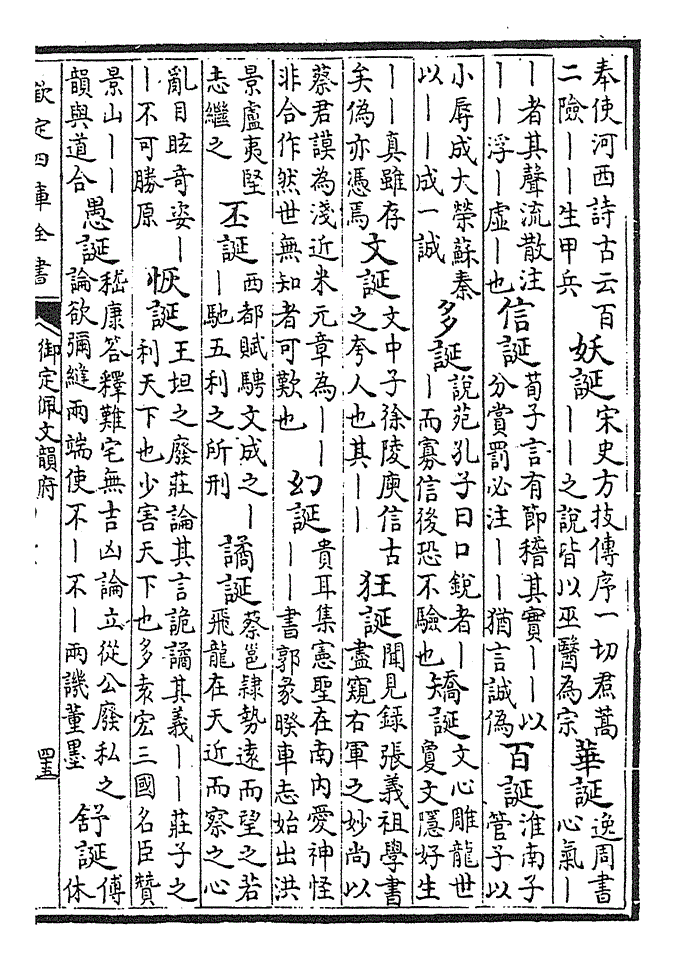 奉使河西詩古云百
二險丨丨生甲兵
妖誕
宋史方技傳序一切焄蒿
丨丨之說皆以巫醫為宗
華誕
逸周書
心氣丨
丨者其聲流散注
丨丨浮丨虛丨也
信誕
荀子言有節稽其實丨丨以
分賞罰必注丨丨猶言誠偽
百誕
淮南子
管子以
小辱成大榮蘇秦
以丨丨成一誠
多誕
說苑孔子曰口銳者丨
丨而寡信後恐不驗也
矯誕
文心雕龍世
夐文隱好生
丨丨真雖存
矣偽亦憑焉
文誕
文中子徐陵庾信古
之夸人也其丨丨
狂誕
聞見錄張義祖學書
盡窺右軍之妙尚以
蔡君謨為淺近米元章為丨丨
非合作然世無知者可歎也
幻誕
貴耳集憲聖在南内愛神怪
丨丨書郭彖睽車志始出洪
景盧夷堅
志繼之
丕誕
西都賦騁文成之丨
丨馳五利之所刑
譎誕
蔡邕隸勢遠而望之若
飛龍在天近而察之心
亂目眩奇姿丨
丨不可勝原
恢誕
王坦之廢莊論其言詭譎其義丨丨莊子之
利天下也少害天下也多袁宏三國名臣贊
景山丨丨
韻與道合
愚誕
嵇康答釋難宅無吉凶論立從公廢私之
論欲彌縫兩端使不丨不丨兩譏董墨
舒誕
傅
休
欽定四庫全書
御定佩文韻府
四五